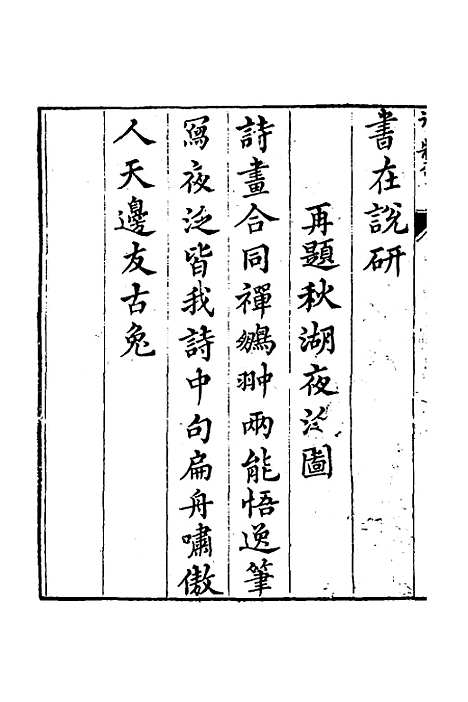 書在說研
再題秋湖夜泛圖
詩畫合同禪鷓翀兩能悟逸筆
寫夜泛皆我詩中句扁舟嘯傲
人天邊友古兔